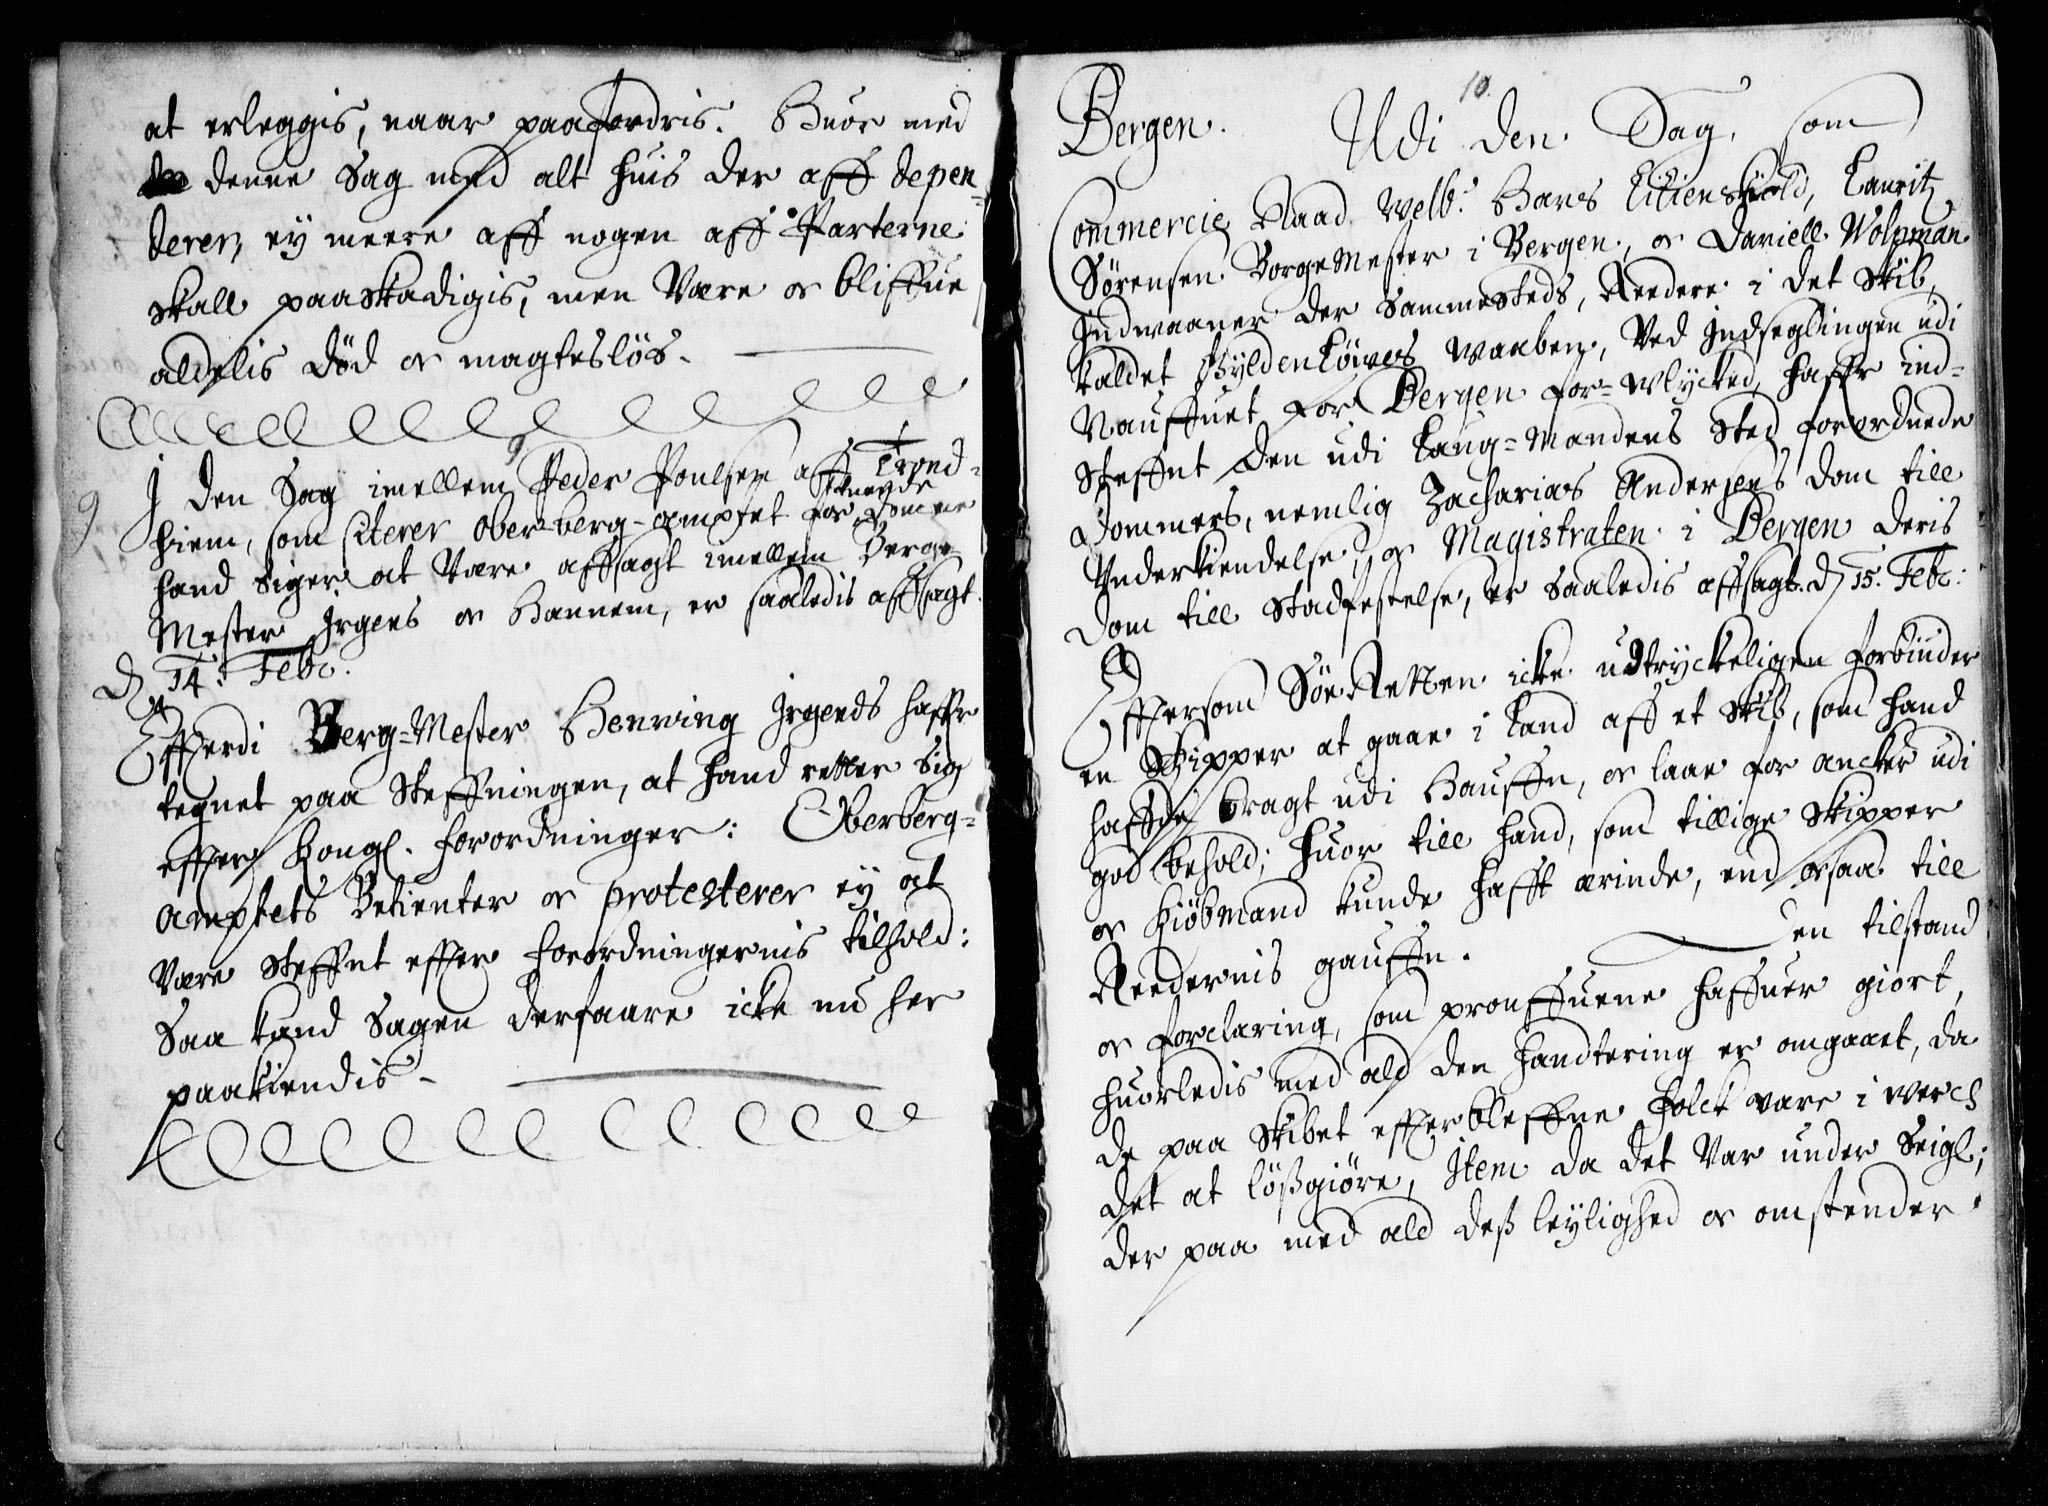 at erleggis, naar paafordris. Huor med
denne Sag med alt huis der aff depen-
derer, ey meere aff nogen aff Parterne
skall paaskadigis, men Være oc bliffue
aldelis død oc magtesløs.
9
9 J den Sag imellem Peder Poulsen aff Trond-
hiem, som Citerer Ober-berg-amptet for tuende Domme
hand Siger at Være affsagt imellem Berg-
Mester Jrgens oc Hannem, er saaledis affsagt.
D. 14. Febr.
Effterdi Berg-Mester Henning Jrgends haffr
tegnet paa Steffningen, at hand retter Sig
effter Kongl. forordninger: Oberberg-
amptets Betienter oc protesterer ey at
Være Steffnt effter forordningernis tilhold:
Saa kand Sagen derfaare icke nu her
paakiendis.
10.
Bergen. Udi den Sag, som
Commercie Raad Velb. Hans Lilienskiold, Lauritz
Sørensen BorgeMester i Bergen, oc Daniell Wolpman
Jndwaaner der Sammesteds, Reedere i det Skib,
kaldet Gyldenløwes Waaben, Ved Jndseglingen udi
Nauffuet for Bergen for-Vlycked, haffr ind-
Steffnt den udi Laug-Mandens Sted forordnede
Dommers, nemlig Zacharias Andersens dom till
Underkiendelse, oc Magistraten i Bergen deris
Dom till Stadfestelse, er Saaledis affsagt. D. 15. Febr:
Efftersom Søe-Retten icke udtryckeligen forbinder
en Skipper at gaae i Land aff et Skib, som hand
haffde bragt udi Hauffn, oc laae for ancker udi
god behold; huor till hand, som tillige Skipper
oc Kiøbmand kunde hafft ærinde, end ocsaa till
Reedernis gauffn. Den tilstand
oc forclaring, som prouffuene haffuer giort,
huorledis med ald den handtering er omgaaet, da
de paa Skibet effterbleffne folck vare i werch
det at løßgiøre, Jtem da det Var under Seigl;
der paa med ald deß leylighed oc omstender